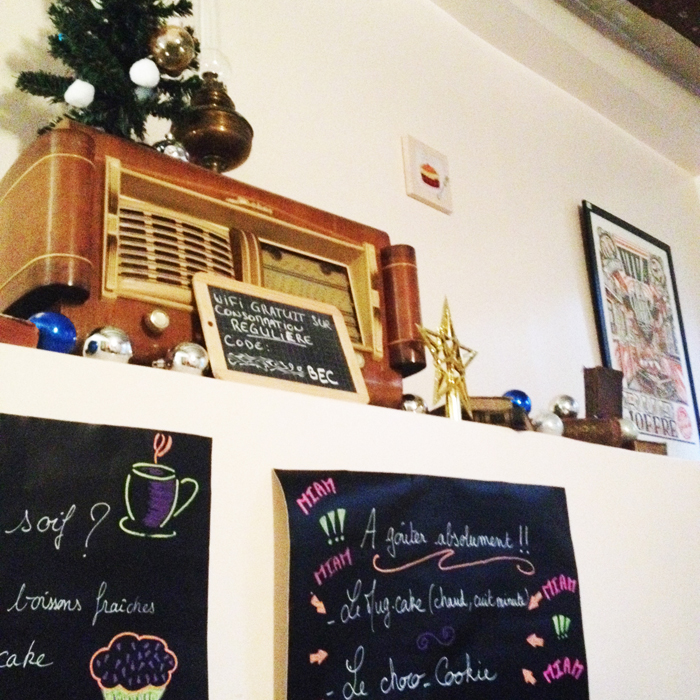 WiFi GRATUIT SUR
CONSOMMATION
REGULIERE
CODE:
BEC
VIVA
JOFFRE
soif ?
boissons fraîches
cake
MIAM
!!!
MIAM
A goûter absolument !!
- Le Mug-cake (chaud, cuit minute)
MIAM
!!!
MIAM
- Le choco-Cookie